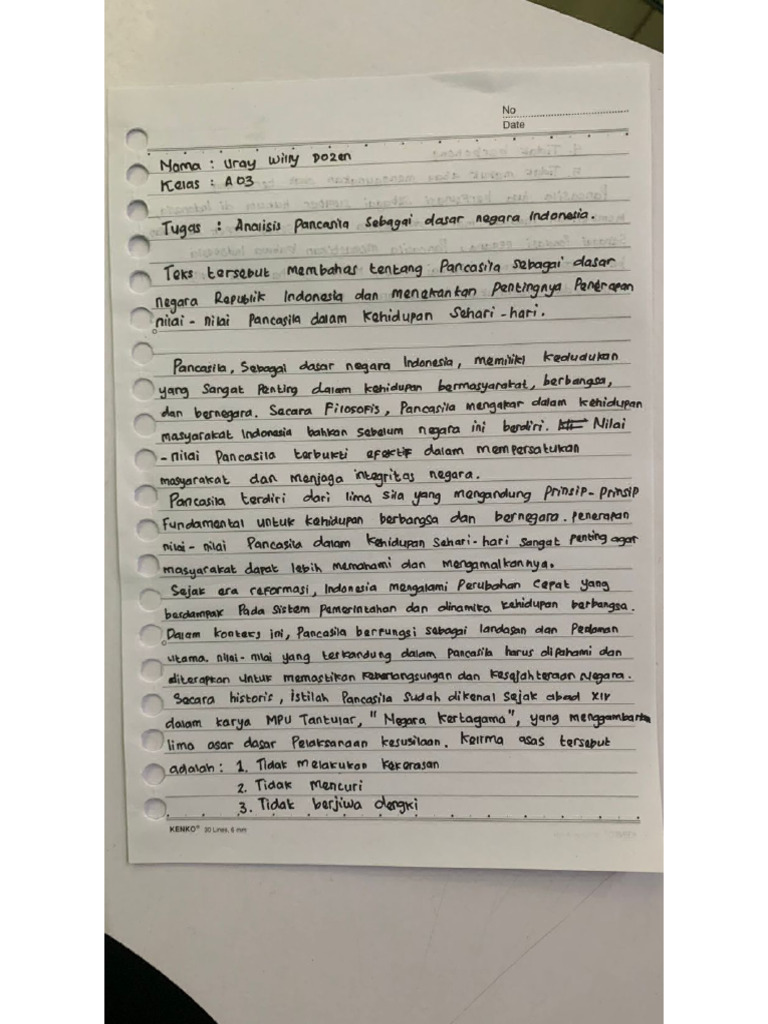 No
Date
Nama : Uray Willy Dozen
Kelas : A03
Tugas : Analisis Pancasila Sebagai dasar negara Indonesia.
Teks tersebut membahas tentang Pancasila sebagai dasar
negara Republik Indonesia dan menekankan Pentingnya Penerapan
nilai - nilai Pancasila dalam Kehidupan Sehari - hari.
Pancasila, Sebagai dasar negara Indonesia, memiliki kedudukan
yang Sangat Penting dalam kehidupan bermasyarakat, berbangsa,
dan bernegara. Secara Filosofis, Pancasila mengakar dalam kehidupan
masyarakat Indonesia bahkan sebelum negara ini berdiri. Nilai
- nilai Pancasila terbukti efektif dalam mempersatukan
masyarakat dan menjaga integritas negara.
Pancasila terdiri dari lima sila yang mengandung Prinsip - Prinsip
Fundamental untuk kehidupan berbangsa dan bernegara. Penerapan
nilai - nilai Pancasila dalam Kehidupan Sehari - hari Sangat Penting agar
masyarakat dapat lebih memahami dan mengamalkannya.
Sejak era reformasi, Indonesia mengalami Perubahan Cepat yang
berdampak Pada Sistem Pemerintahan dan dinamika kehidupan berbangsa.
Dalam konteks ini, Pancasila berfungsi sebagai landasan dan Pedoman
utama. nilai - nilai yang terkandung dalam Pancasila harus dipahami dan
diterapkan untuk memastikan keberlangsungan dan kesejahteraan Negara.
Secara historis, istilah Pancasila Sudah dikenal Sejak abad XIV
dalam karya MPU Tantular, "Negara Kertagama", yang menggambarkan
lima asar dasar Pelaksanaan kesusilaan. Kelima asas tersebut
adalah : 1. Tidak melakukan kekerasan
2. Tidak Mencuri
3. Tidak berjiwa dengki
KENKO® 30 Lines, 6 mm